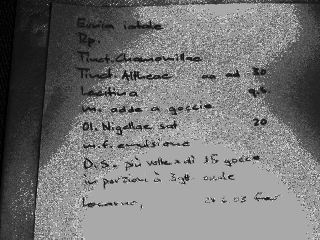 Rp.
Tinct. Chamomillae
Tinct. Altheae aa ad 30
Lecitina q.s.
m. adde a goccie
Ol. Nigellae sat 20
m.f. emulsione
D.S. più volte al dì 15 gocce
in porzioni à 3
Locarno,